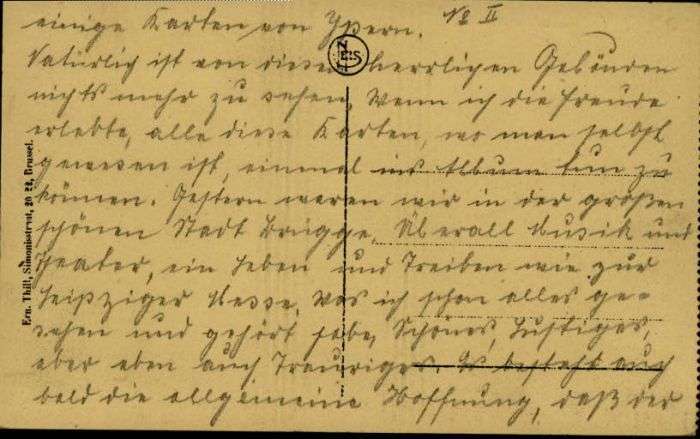 einige Karten von Ypern. No II
Natürlich ist von diesen herrlichen Gebäuden
nichts mehr zu sehen, Wenn ich die Freude
erlebte, alle diese Karten, wo man selbst
gewesen ist, einmal ins Album tun zu
können. Gestern waren wir in der großen
schönen Stadt Brügge, Überall Musik und
Theater, ein Leben und Treiben wie zur
Leipziger Messe, Was ich schon alles ge-
sehen und gehört habe, Schönes, Lustiges,
aber eben auch Trauriges. Es besteht auch
bald die allgemeine Hoffnung, daß der
Ern. Thill, Simonisstraat, 20 22, Brussel.
NELS